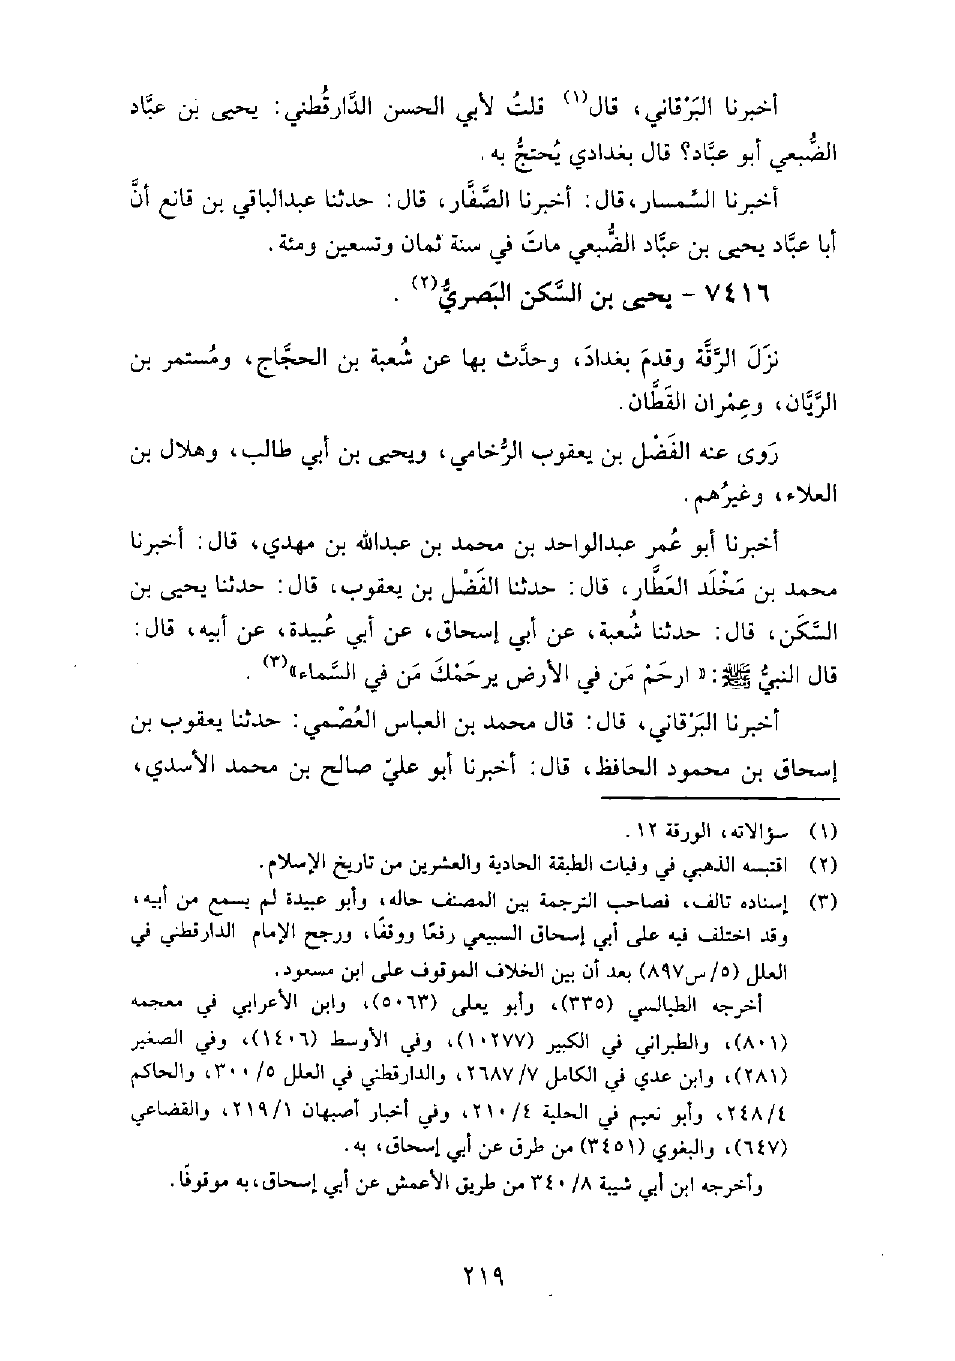 أخبرنا البَرْقاني، قال(١) قلتُ لأبي الحسن الدَّارقُطني: يحيى بن عبَّاد
الضُّبعي أبو عبَّاد؟ قال بغدادي يُحتجُّ به.
أخبرنا السِّمسار، قال: أخبرنا الصَّفَّار، قال: حدثنا عبدالباقي بن قانع أنَّ
أبا عبَّاد يحيى بن عبَّاد الضُّبعي ماتَ في سنة ثمان وتسعين ومئة.
٧٤١٦ - يحيى بن السَّكن البَصريُّ(٢).
نزَلَ الرَّقَّة وقدمَ بغدادَ، وحدَّث بها عن شُعبة بن الحجَّاج، ومُستمر بن
الرَّيَّان، وعِمْران القَطَّان.
رَوى عنه الفَضْل بن يعقوب الرُّخامي، ويحيى بن أبي طالب، وهلال بن
العلاء، وغيرُهم.
أخبرنا أبو عُمر عبدالواحد بن محمد بن عبدالله بن مهدي، قال: أخبرنا
محمد بن مَخْلَد العَطَّار، قال: حدثنا الفَضْل بن يعقوب، قال: حدثنا يحيى بن
السَّكَن، قال: حدثنا شُعبة، عن أبي إسحاق، عن أبي عُبيدة، عن أبيه، قال:
قال النبيُّ ﷺ: «ارحَمْ مَن في الأرض يرحَمْكَ مَن في السَّماء»(٣).
أخبرنا البَرْقاني، قال: قال محمد بن العباس العُصْمي: حدثنا يعقوب بن
إسحاق بن محمود الحافظ، قال: أخبرنا أبو عليّ صالح بن محمد الأسدي،
(١) سؤالاته، الورقة ١٢.
(٢) اقتبسه الذهبي في وفيات الطبقة الحادية والعشرين من تاريخ الإسلام.
(٣) إسناده تالف، فصاحب الترجمة بين المصنف حاله، وأبو عبيدة لم يسمع من أبيه،
وقد اختلف فيه على أبي إسحاق السبيعي رفعًا ووقفًا، ورجح الإمام الدارقطني في
العلل (٥/ س٨٩٧) بعد أن بين الخلاف الموقوف على ابن مسعود.
أخرجه الطيالسي (٣٣٥)، وأبو يعلى (٥٠٦٣)، وابن الأعرابي في معجمه
(٨٠١)، والطبراني في الكبير (١٠٢٧٧)، وفي الأوسط (١٤٠٦)، وفي الصغير
(٢٨١)، وابن عدي في الكامل ٧/ ٢٦٨٧، والدارقطني في العلل ٥/ ٣٠٠، والحاكم
٤/ ٢٤٨، وأبو نعيم في الحلية ٤/ ٢١٠، وفي أخبار أصبهان ١/ ٢١٩، والقضاعي
(٦٤٧)، والبغوي (٣٤٥١) من طرق عن أبي إسحاق، به.
وأخرجه ابن أبي شيبة ٨/ ٣٤٠ من طريق الأعمش عن أبي إسحاق، به موقوفًا.
٢١٩